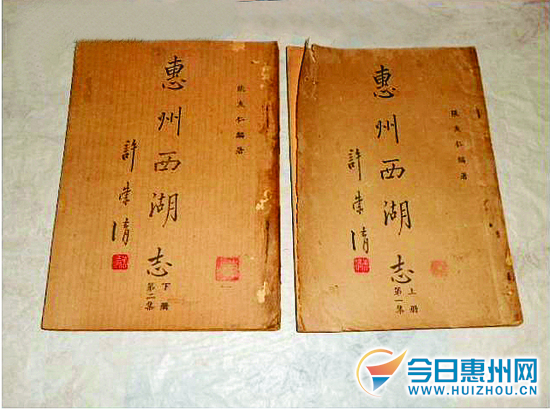 惠州西湖志
張友仁編著
許崇清
下册
第二集
惠州西湖志
張友仁編著
許崇清
上册
第一集
今日惠州网
WWW.HUIZHOU.CN